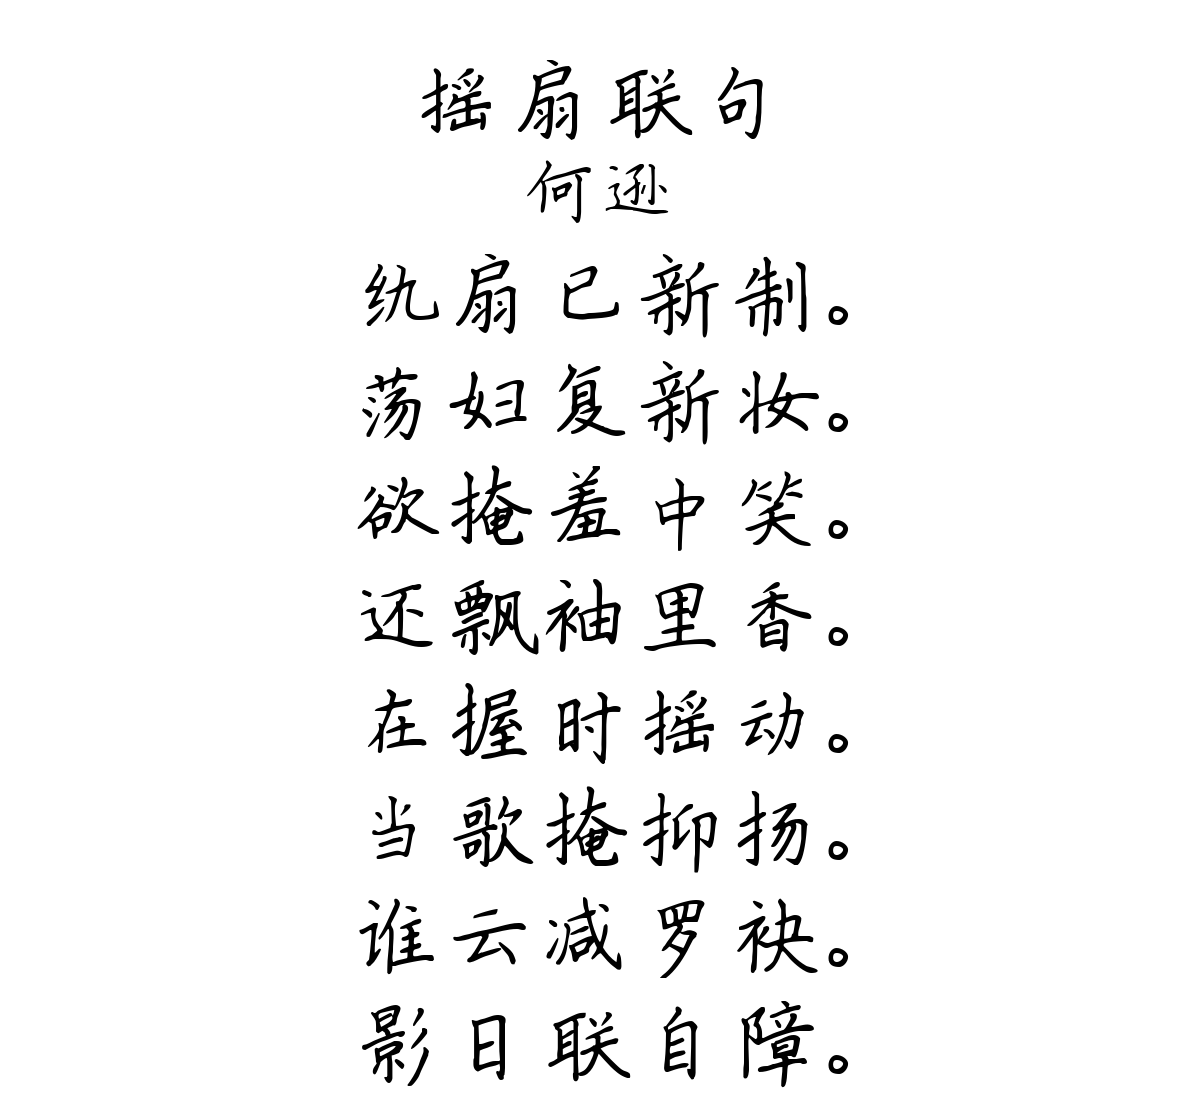 摇扇联句
何逊
纨扇已新制。
荡妇复新妆。
欲掩羞中笑。
还飘袖里香。
在握时摇动。
当歌掩抑扬。
谁云减罗袂。
影日联自障。